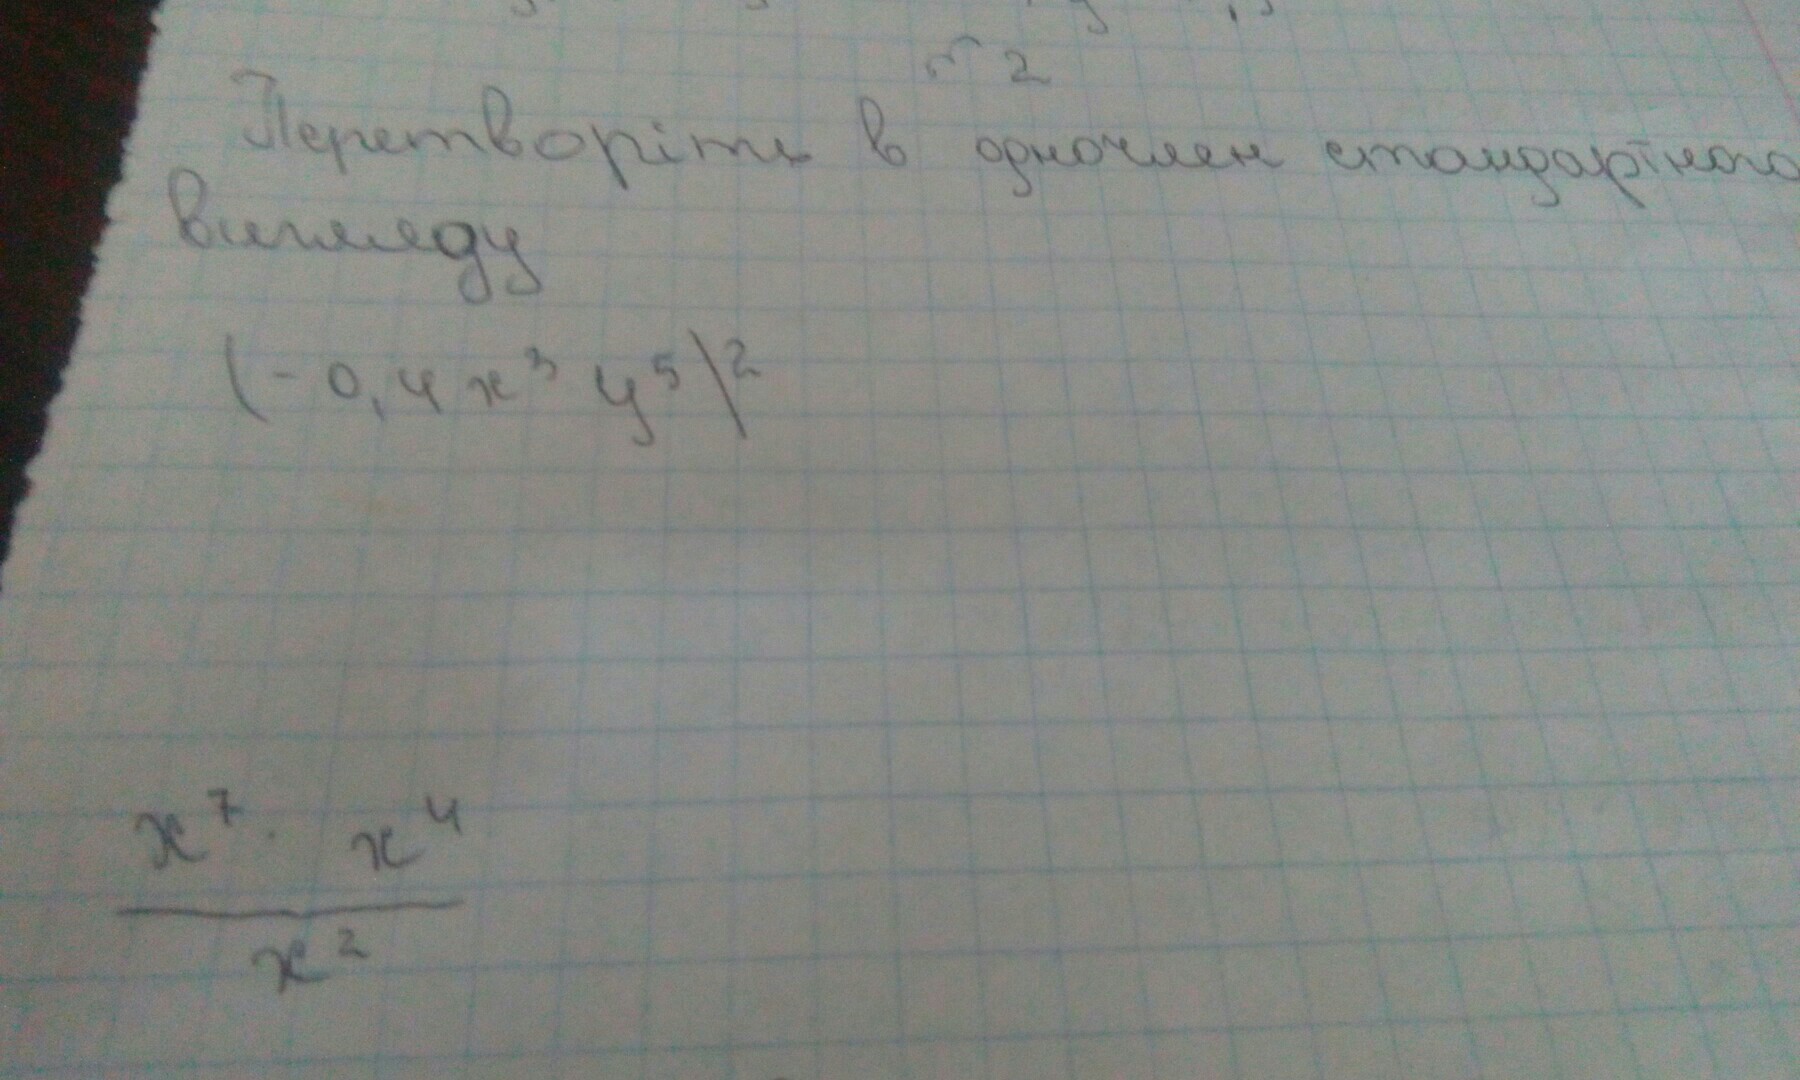 2
Перетворіть в одночлен стандартного
вигляду
(-0,4x³ y⁵)²
x⁷ · x⁴
x²